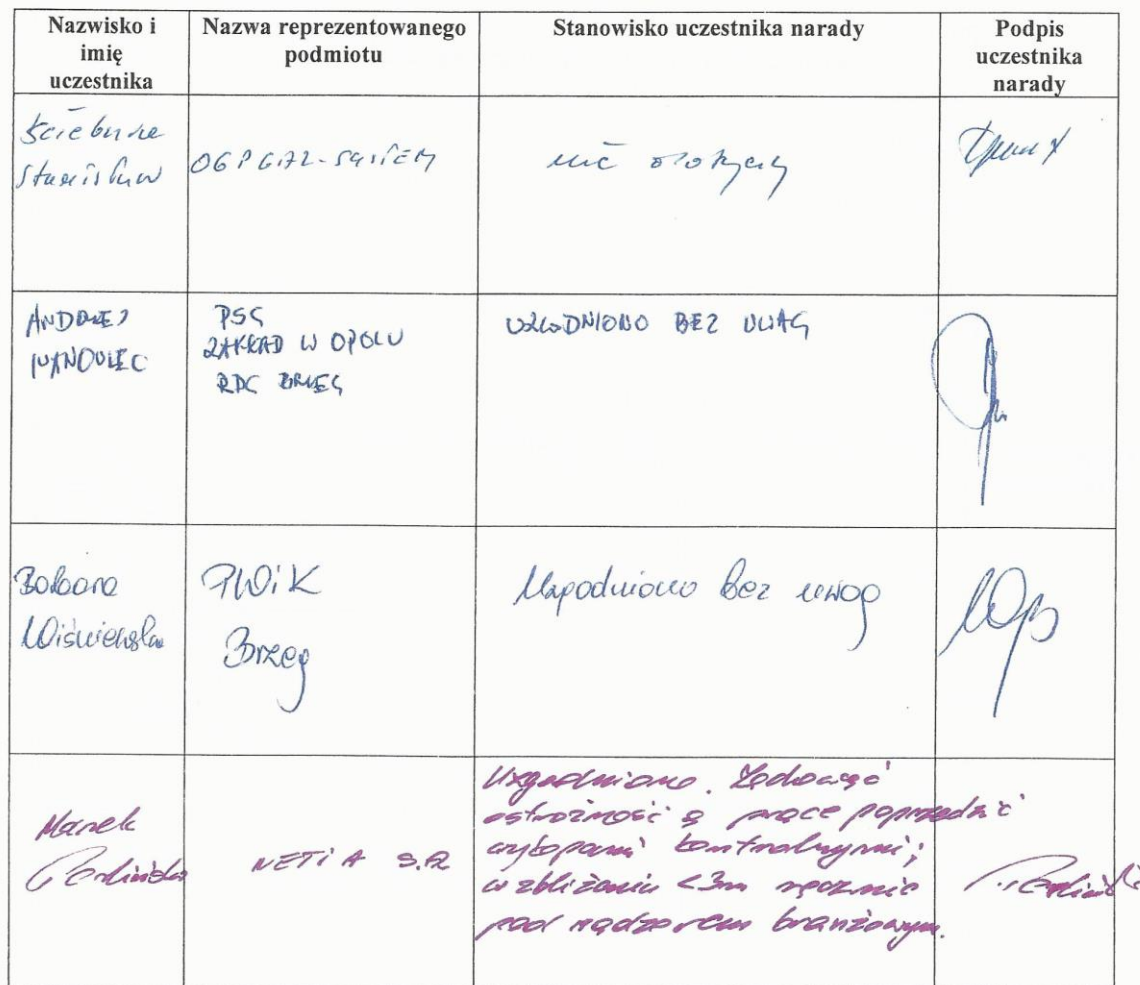 Nazwisko i
imię
uczestnika
Nazwa reprezentowanego
podmiotu
Stanowisko uczestnika narady
Podpis
uczestnika
narady
Stanisław
OGP GAZ-SYSTEM
nie dotyczy
ANDRZEJ
PSG
ZAKŁAD W OPOLU
RDG BRZEG
UZGODNIONO BEZ UWAG
Barbara
Wiśniewska
PWiK
Brzeg
Uzgodniono bez uwag
Marek
NETIA S.A.
Uzgodniono. Zachować
ostrożność a prace poprzedzić
wykopami kontrolnymi;
w zbliżeniu <3m ręcznie
pod nadzorem branżowym.